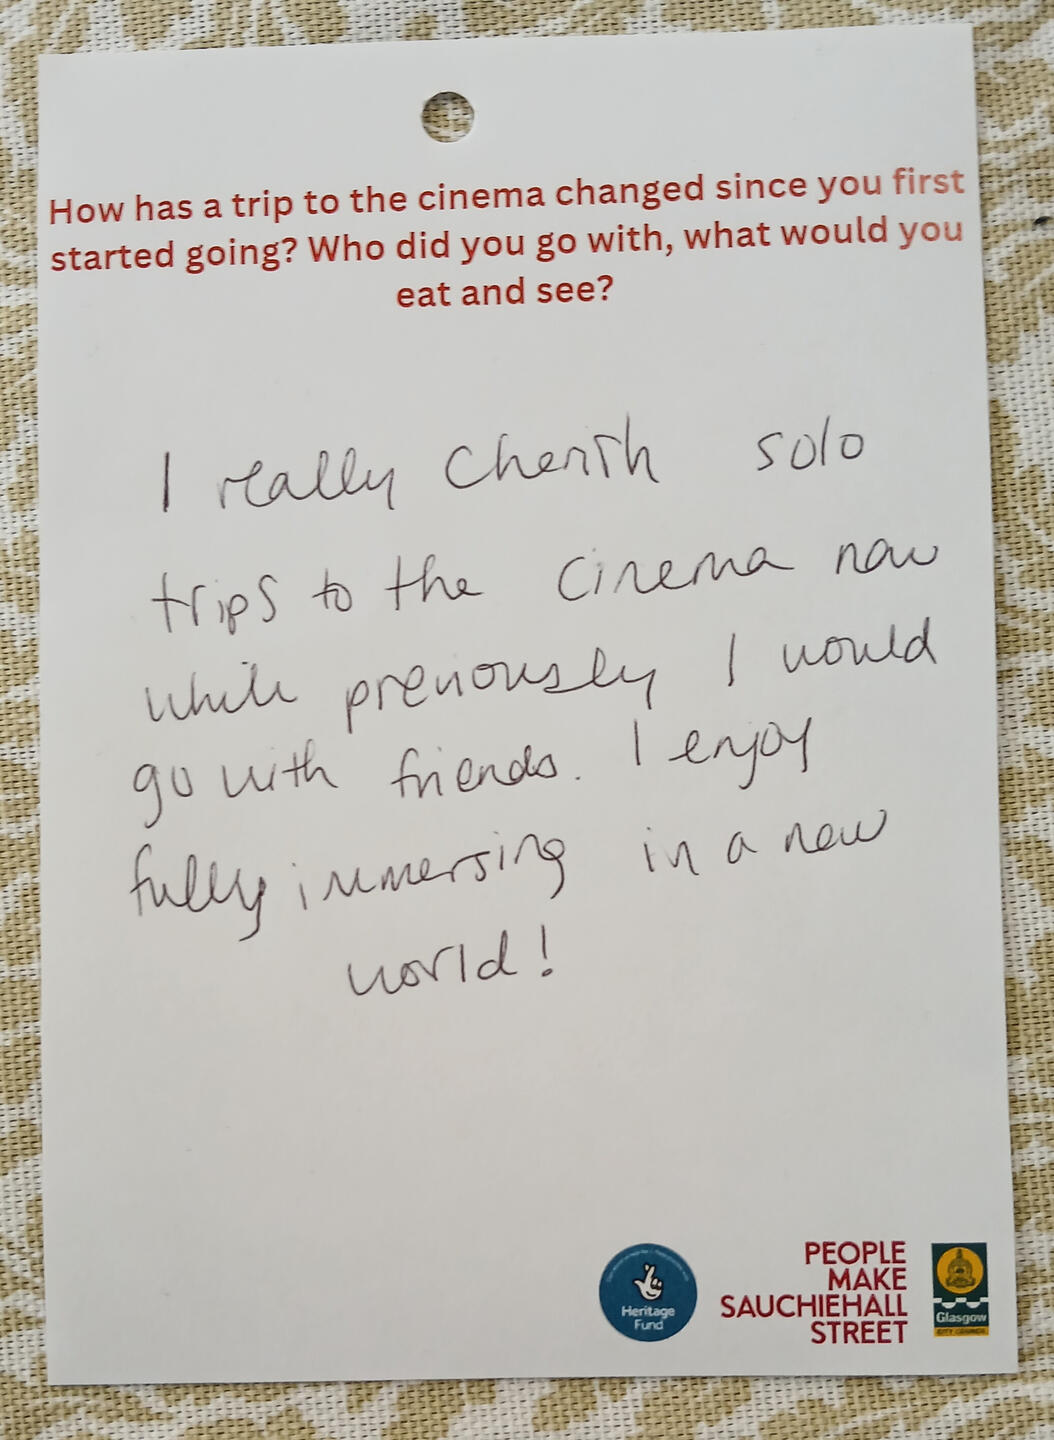 How has a trip to the cinema changed since you first
started going? Who did you go with, what would you
eat and see?
I really cherish solo
trips to the cinema now
while previously I would
go with friends. I enjoy
fully immersing in a new
world!
Heritage
Fund
PEOPLE
MAKE
SAUCHIEHALL
STREET
Glasgow
CITY COUNCIL